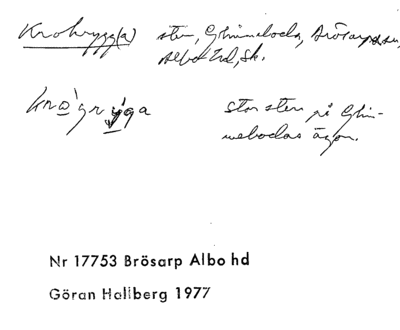 Krokrygg(a) sten, Glimmeboda, Brösarps sn,
Albo hd, Sk.
kro̱´gry̱´ga stor sten på Glim-
mebodas ägor.
Nr 17753 Brösarp Albo hd
Göran Hallberg 1977